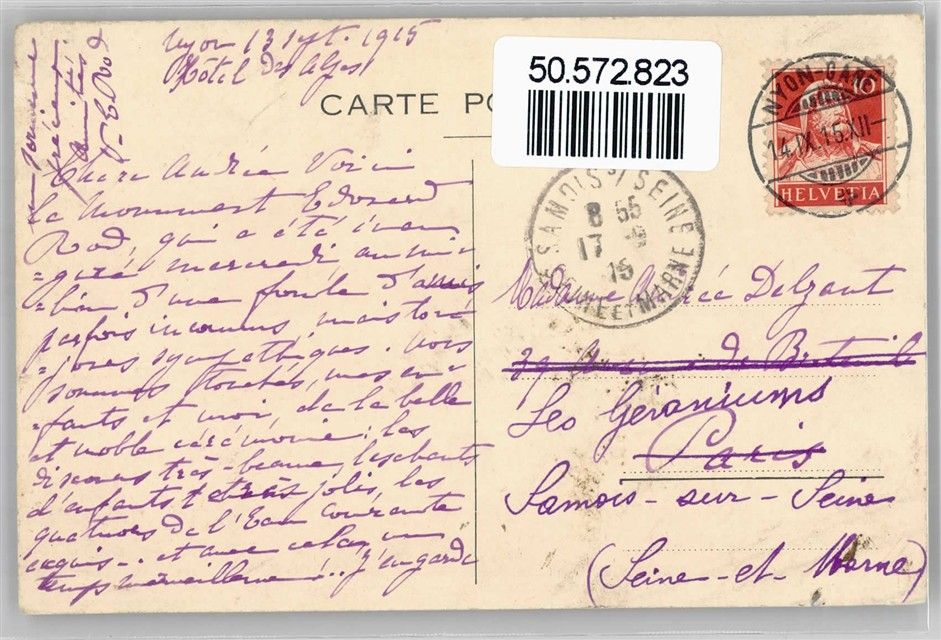 Nyon 13 sept. 1915
Hôtel Des Alpes
CARTE PO
50.572.823
Chère Andrée Voici
le monument Edouard
Rod, qui a été inau
=guré mercredi au mi
=lieu d'une foule d'amis
parfois inconnus, mais tou
=jours sympathiques. nous
sommes touchés, mes en
=fants et moi, de la belle
et noble cérémonie; les
discours très-beaux, les chants
d'enfants très jolis, les
quatuors de l'Eau courante
exquis... et avec cela, un
temps merveilleux!.. j'en garde
un
précieux
amitiés
V- Ed Rod
NYON-GARE
14.IX.15.XII-
HELVETIA
10
SAMOIS S/ SEINE
8 55
17 -9
15
SEINE ET MARNE
Madame Andrée Delzant
39 de Breteuil
Les Géraniums
Paris
Samois-sur-Seine
(Seine-et-Marne)